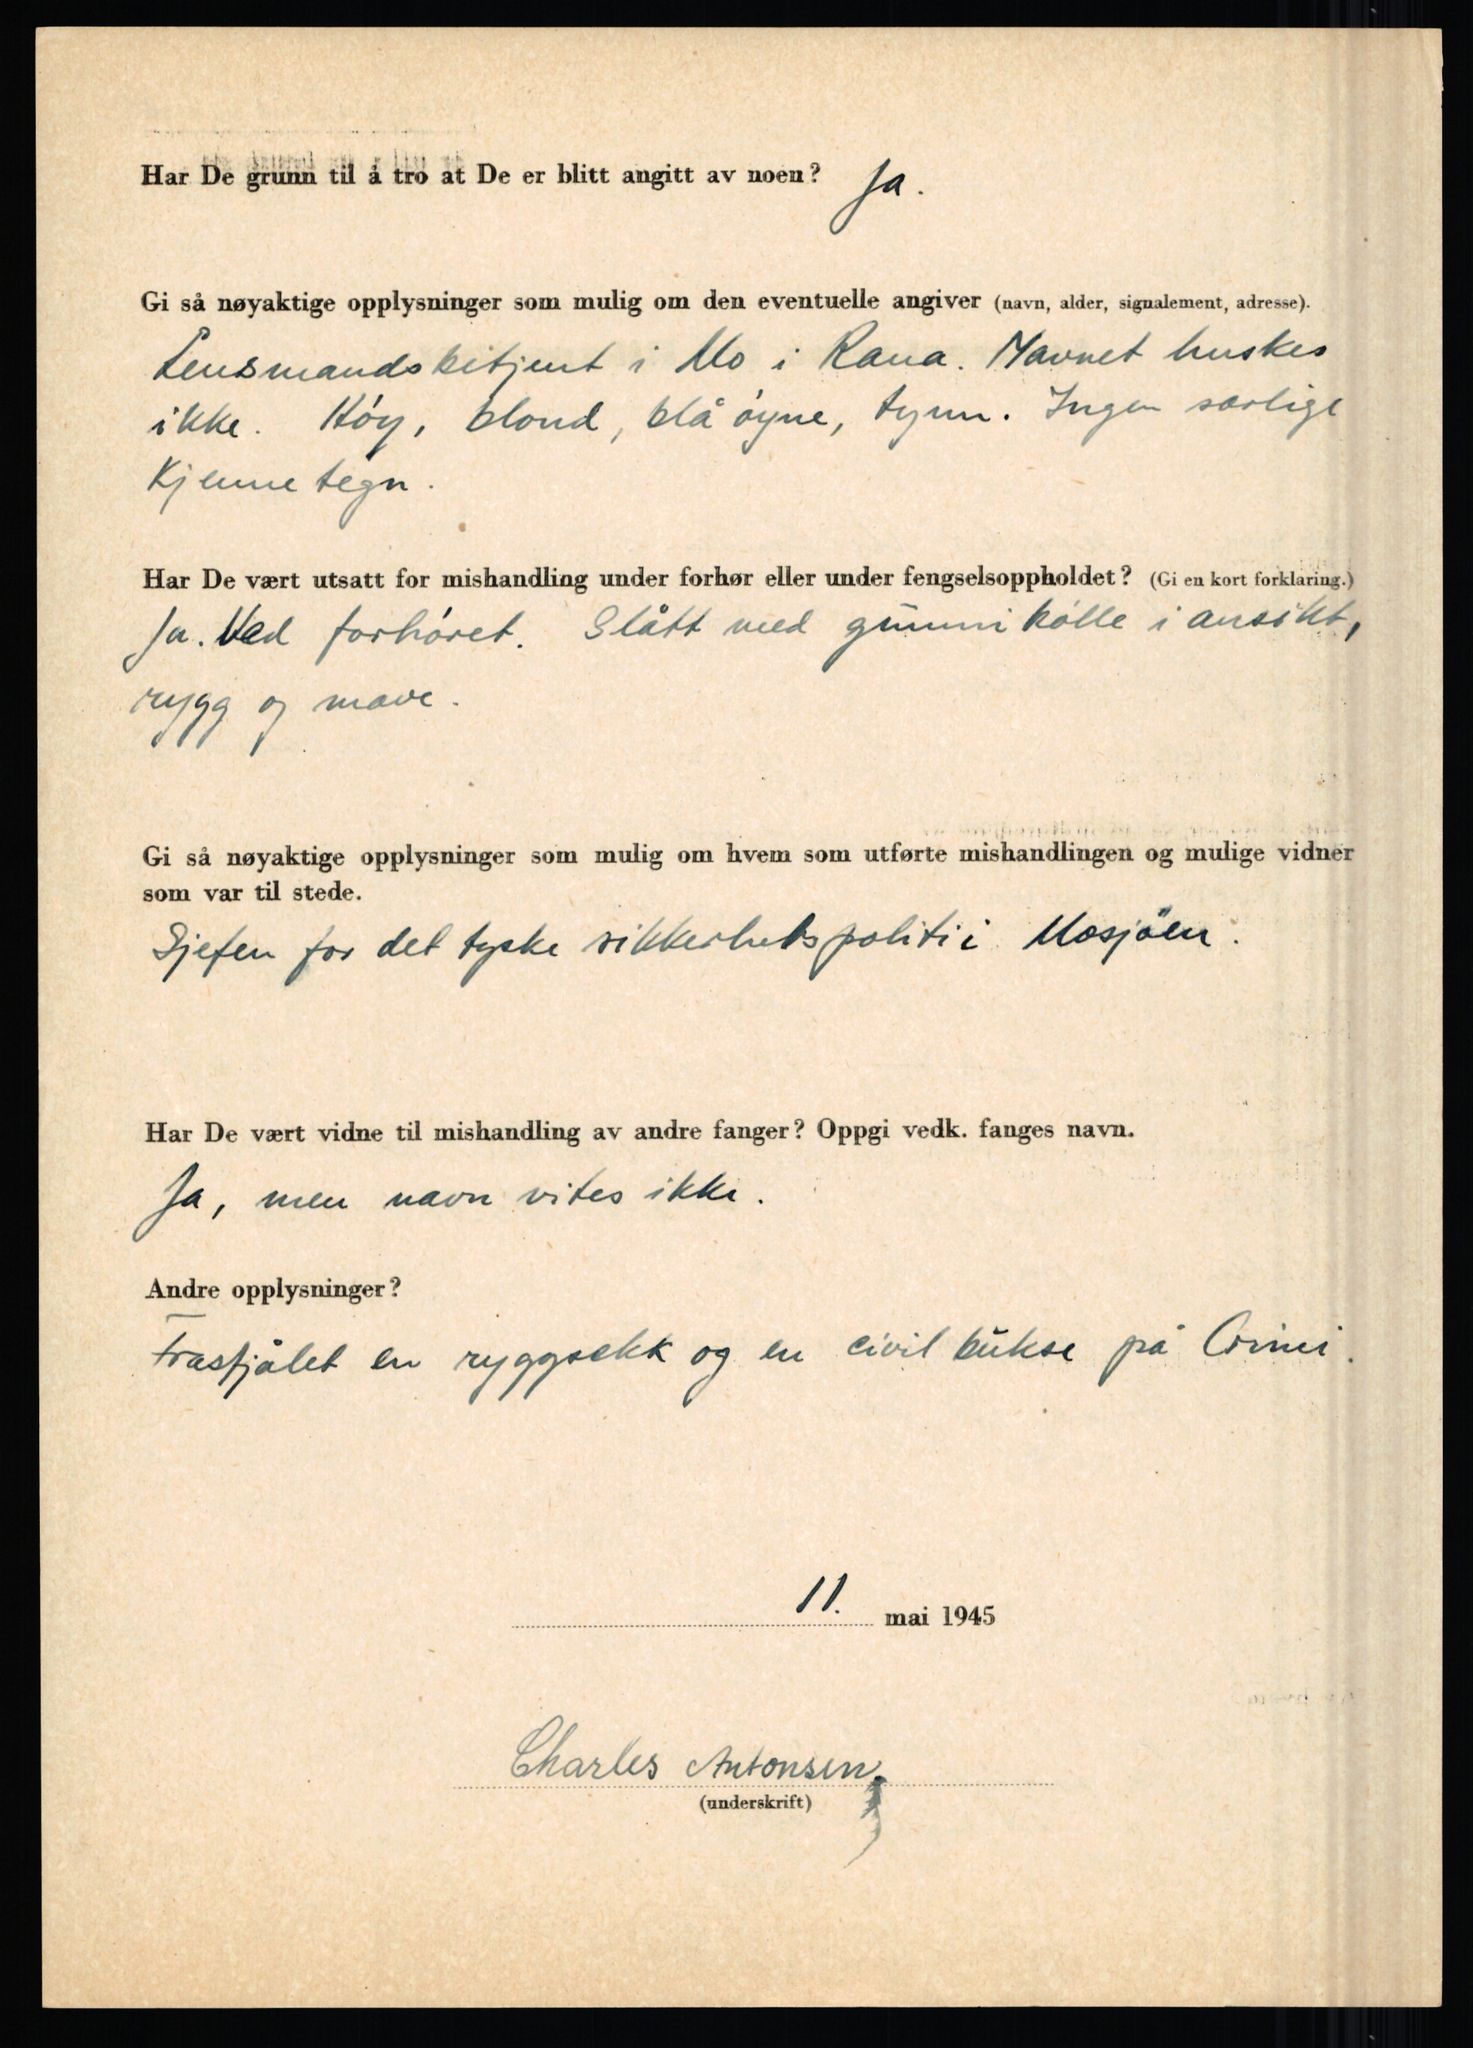 Har De grunn til å tro at De er blitt angitt av noen? Ja.
Gi så nøyaktige opplysninger som mulig om den eventuelle angiver (navn, alder, signalement, adresse).
Lensmandsbitjent i Mo i Rana. Navnet huskes
ikke. Høy, blond, blå øyne, tynn. Ingen særlige
Kjennetegn.
Har De vært utsatt for mishandling under forhør eller under fengselsoppholdet? (Gi en kort forklaring.)
Ja. Ved forhøret. Slått med gummikølle i ansikt,
rygg og mave.
Gi så nøyaktige opplysninger som mulig om hvem som utførte mishandlingen og mulige vidner
som var til stede.
Sjefen for det tyske sikkerhetspoliti i Mosjöen.
Har De vært vidne til mishandling av andre fanger? Oppgi vedk. fanges navn.
Ja, men navn vites ikke.
Andre opplysninger?
Frastjålet en ryggsekk og en civil bukse på
11. mai 1945
Charles Antonsen
(underskrift)